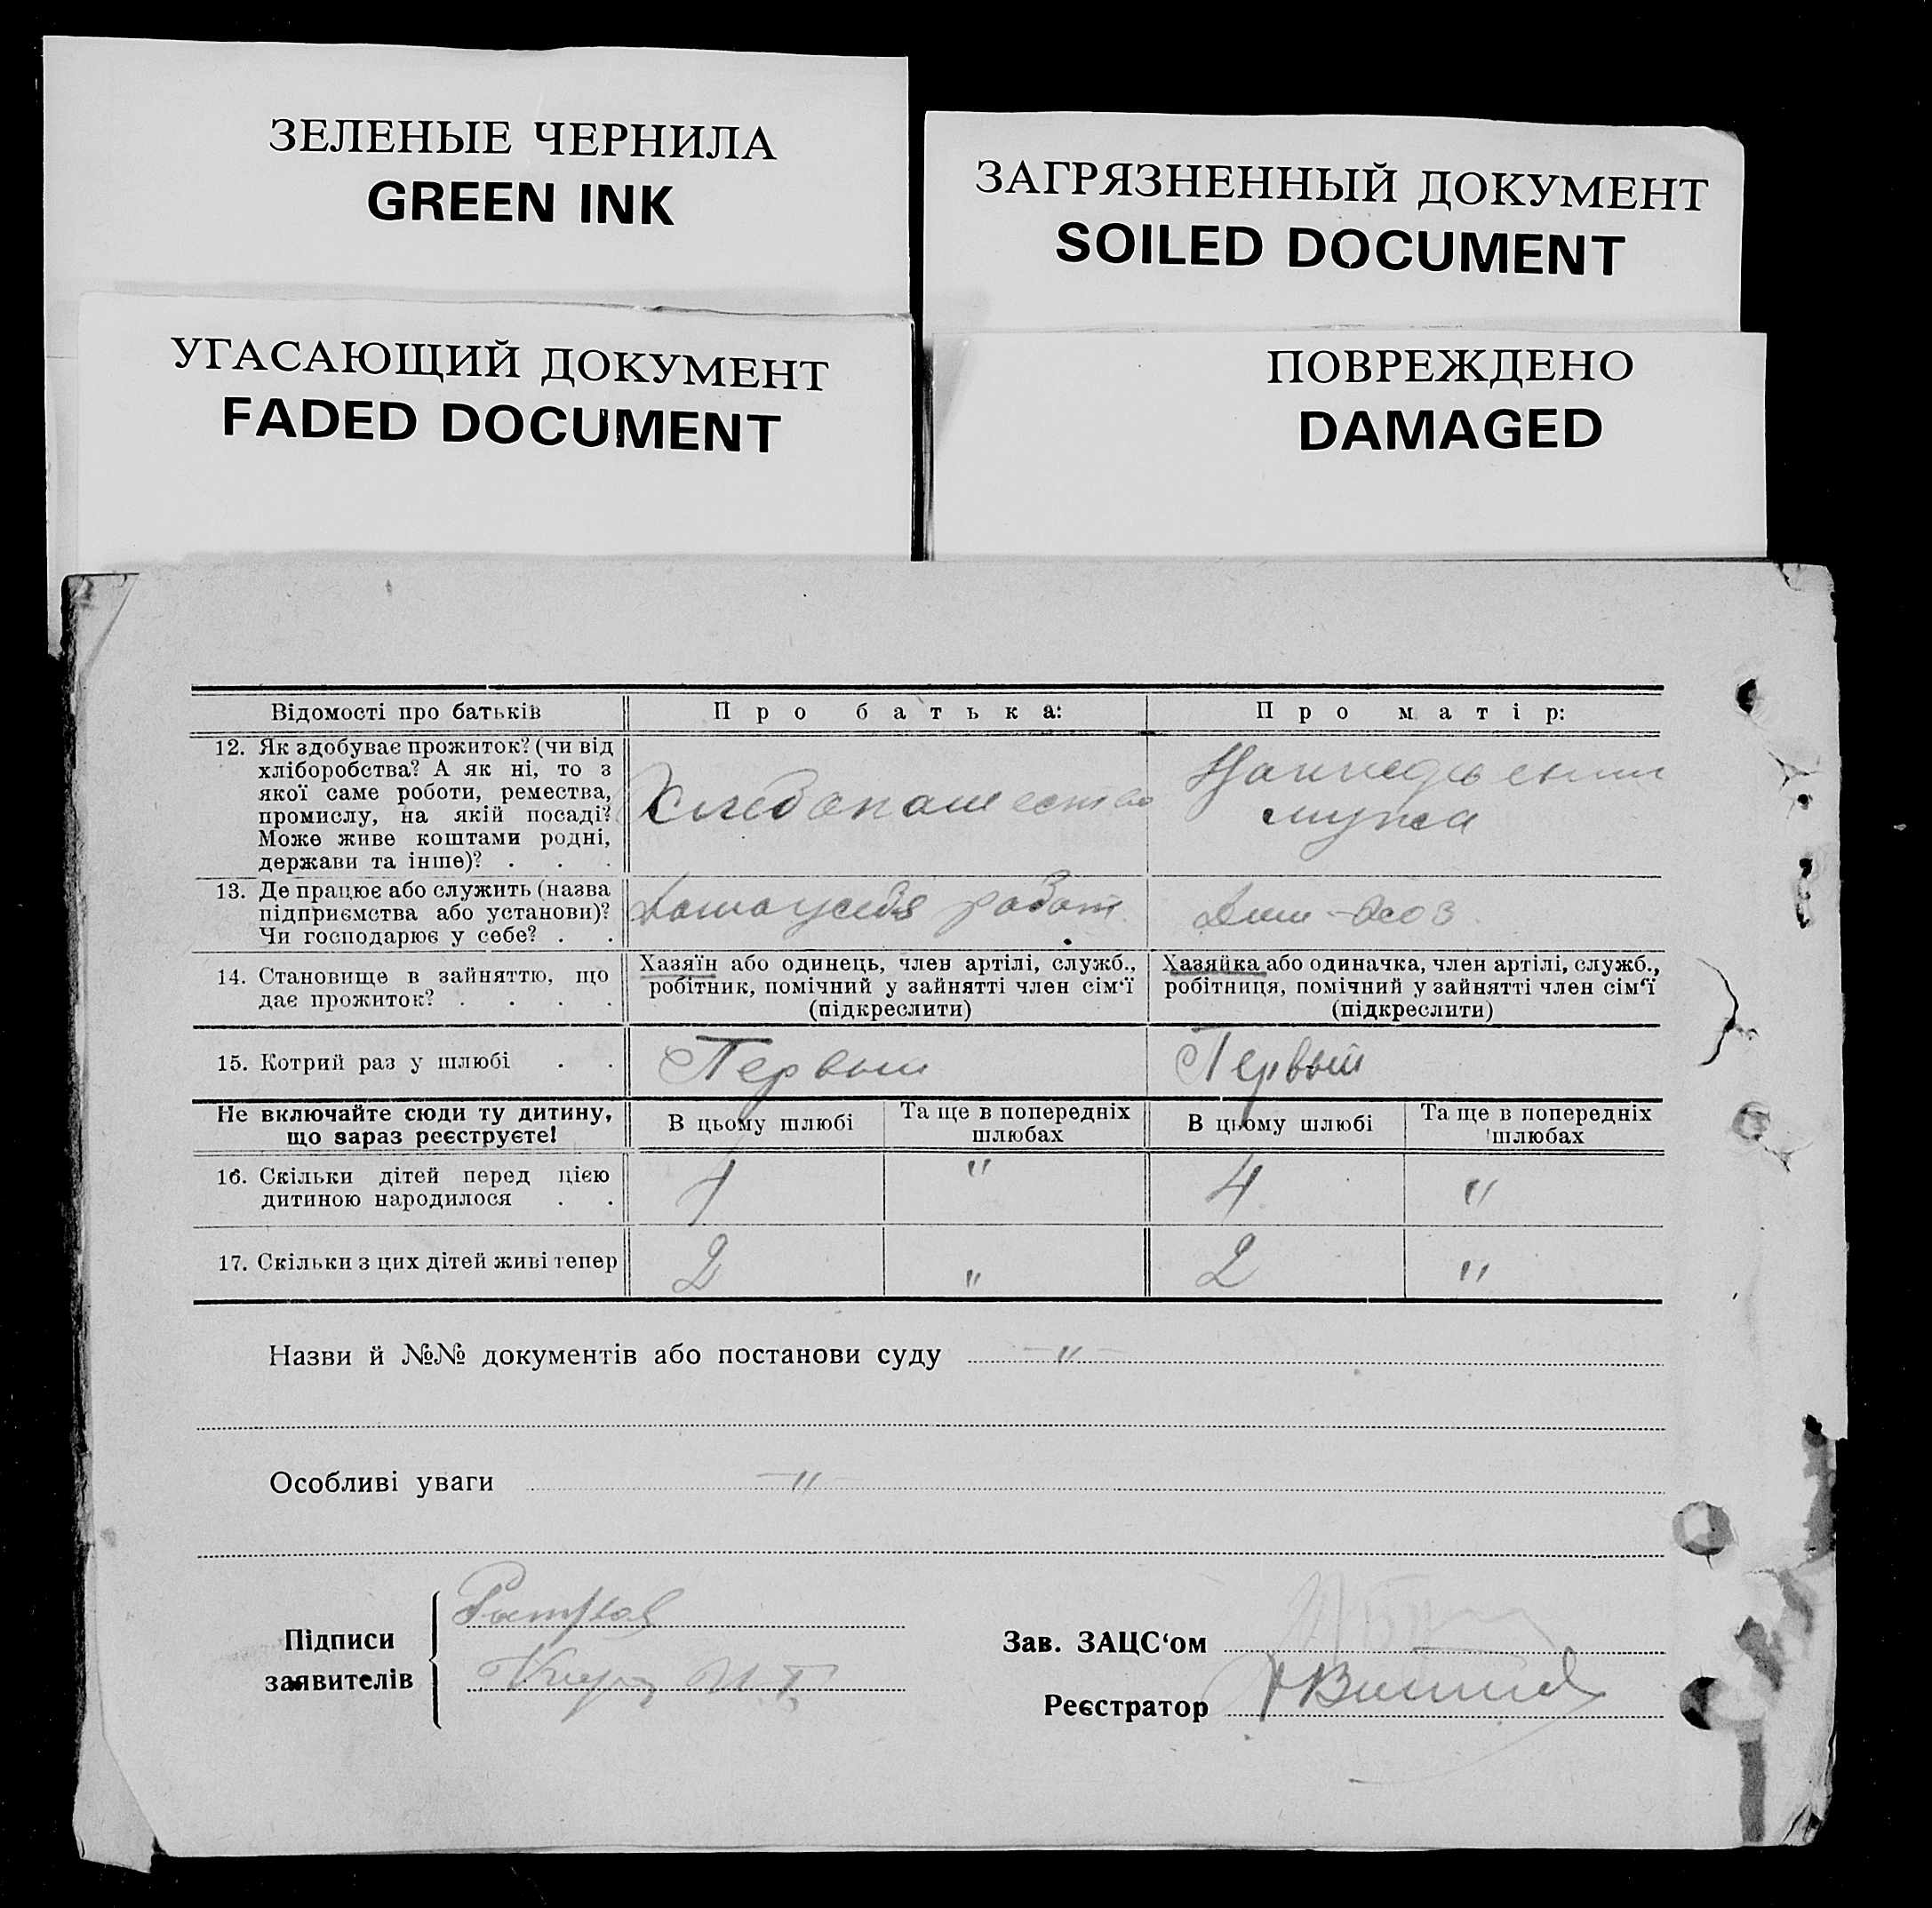 ЗЕЛЕНЫЕ ЧЕРНИЛА
GREEN INK
ЗАГРЯЗНЕННЫЙ ДОКУМЕНТ
SOILED DOCUMENT
УГАСАЮЩИЙ ДОКУМЕНТ
FADED DOCUMENT
ПОВРЕЖДЕНО
DAMAGED
Відомості про батьків
Про батька:
Про матір:
12. Як здобуває прожиток? (чи від
хліборобства? А як ні, то з
якої саме роботи, ремества,
промислу, на якій посаді?
Може живе коштами родні,
держави та інше)? . . .
Хлебопашество
На иждевении
мужа
13. Де працює або служить (назва
підприємства або установи)?
Чи господарює у себе? . .
Дома у себя работ.
Дом-хоз.
14. Становище в зайняттю, що
дає прожиток? . . . .
Хазяїн або одинець, член артілі, служб.,
робітник, помічний у зайнятті член сім'ї
(підкреслити)
Хазяйка або одиначка, член артілі, служб.,
робітниця, помічний у зайнятті член сім'ї
(підкреслити)
15. Котрий раз у шлюбі . .
Первый
Первый
Не включайте сюди ту дитину,
що зараз реєструєте!
В цьому шлюбі
Та ще в попередніх
шлюбах
В цьому шлюбі
Та ще в попередніх
шлюбах
16. Скільки дітей перед цією
дитиною народилося . .
"
4
"
17. Скільки з цих дітей живі тепер
2
"
2
"
Назви й №№ документів або постанови суду — " —
Особливі уваги — " —
Підписи
заявителів
Зав. ЗАЦС'ом
Реєстратор